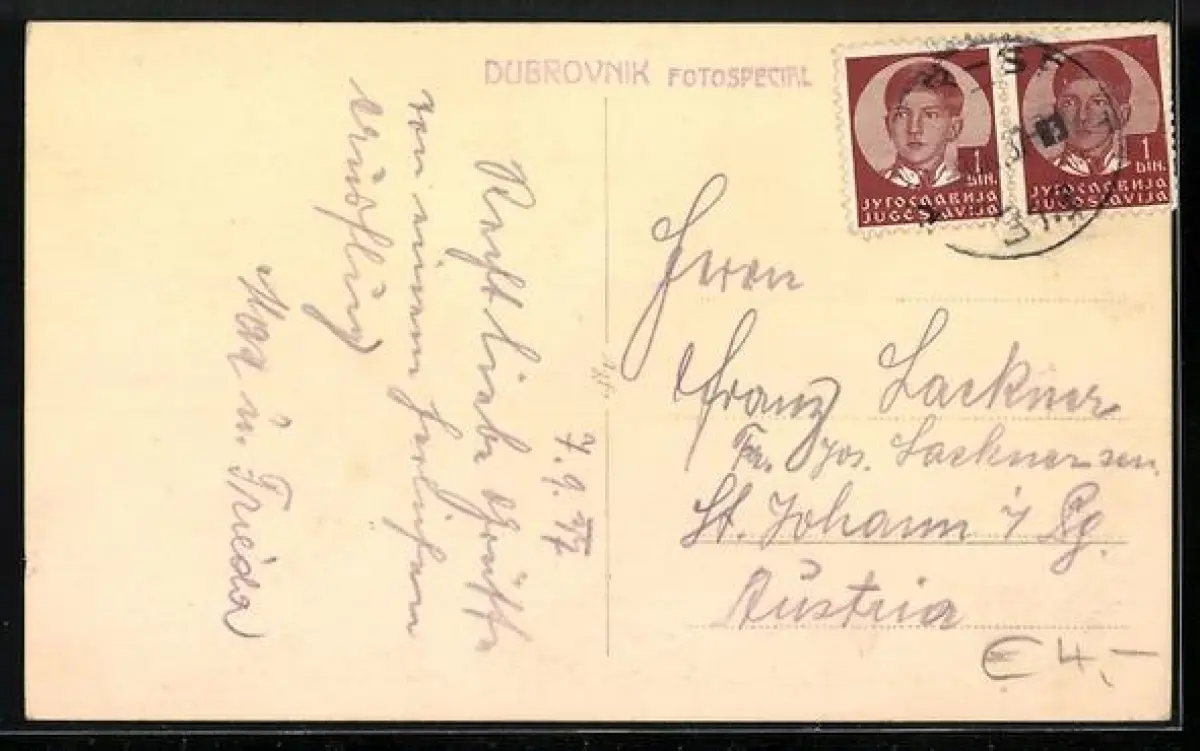 DUBROVNIK FOTOSPECIAL
1
DIN.
ЈУГОСЛАВИЈА
JUGOSLAVIJA
1
DIN.
ЈУГОСЛАВИЈА
JUGOSLAVIJA
7.9.37
Recht liebe Grüße
von einem herrlichen
Ausflug
Max u. Frieda
Herrn
Franz Lackner
Fa. Jos. Lackner sen.
St. Johann i/ Pg.
Austria
€ 4,-